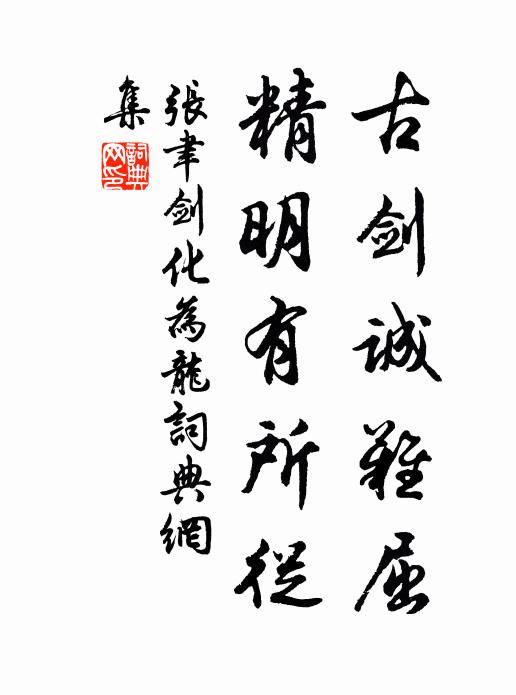 古剑誠難屈
精明有所從
張聿剑化為龍詞典網
集
詞典網印